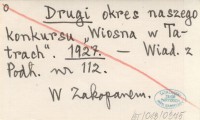 Drugi okres naszego
konkursu „Wiosna w Ta-
trach”. 1927. — Wiad. z
Podh. nr 112.
W Zakopanem.